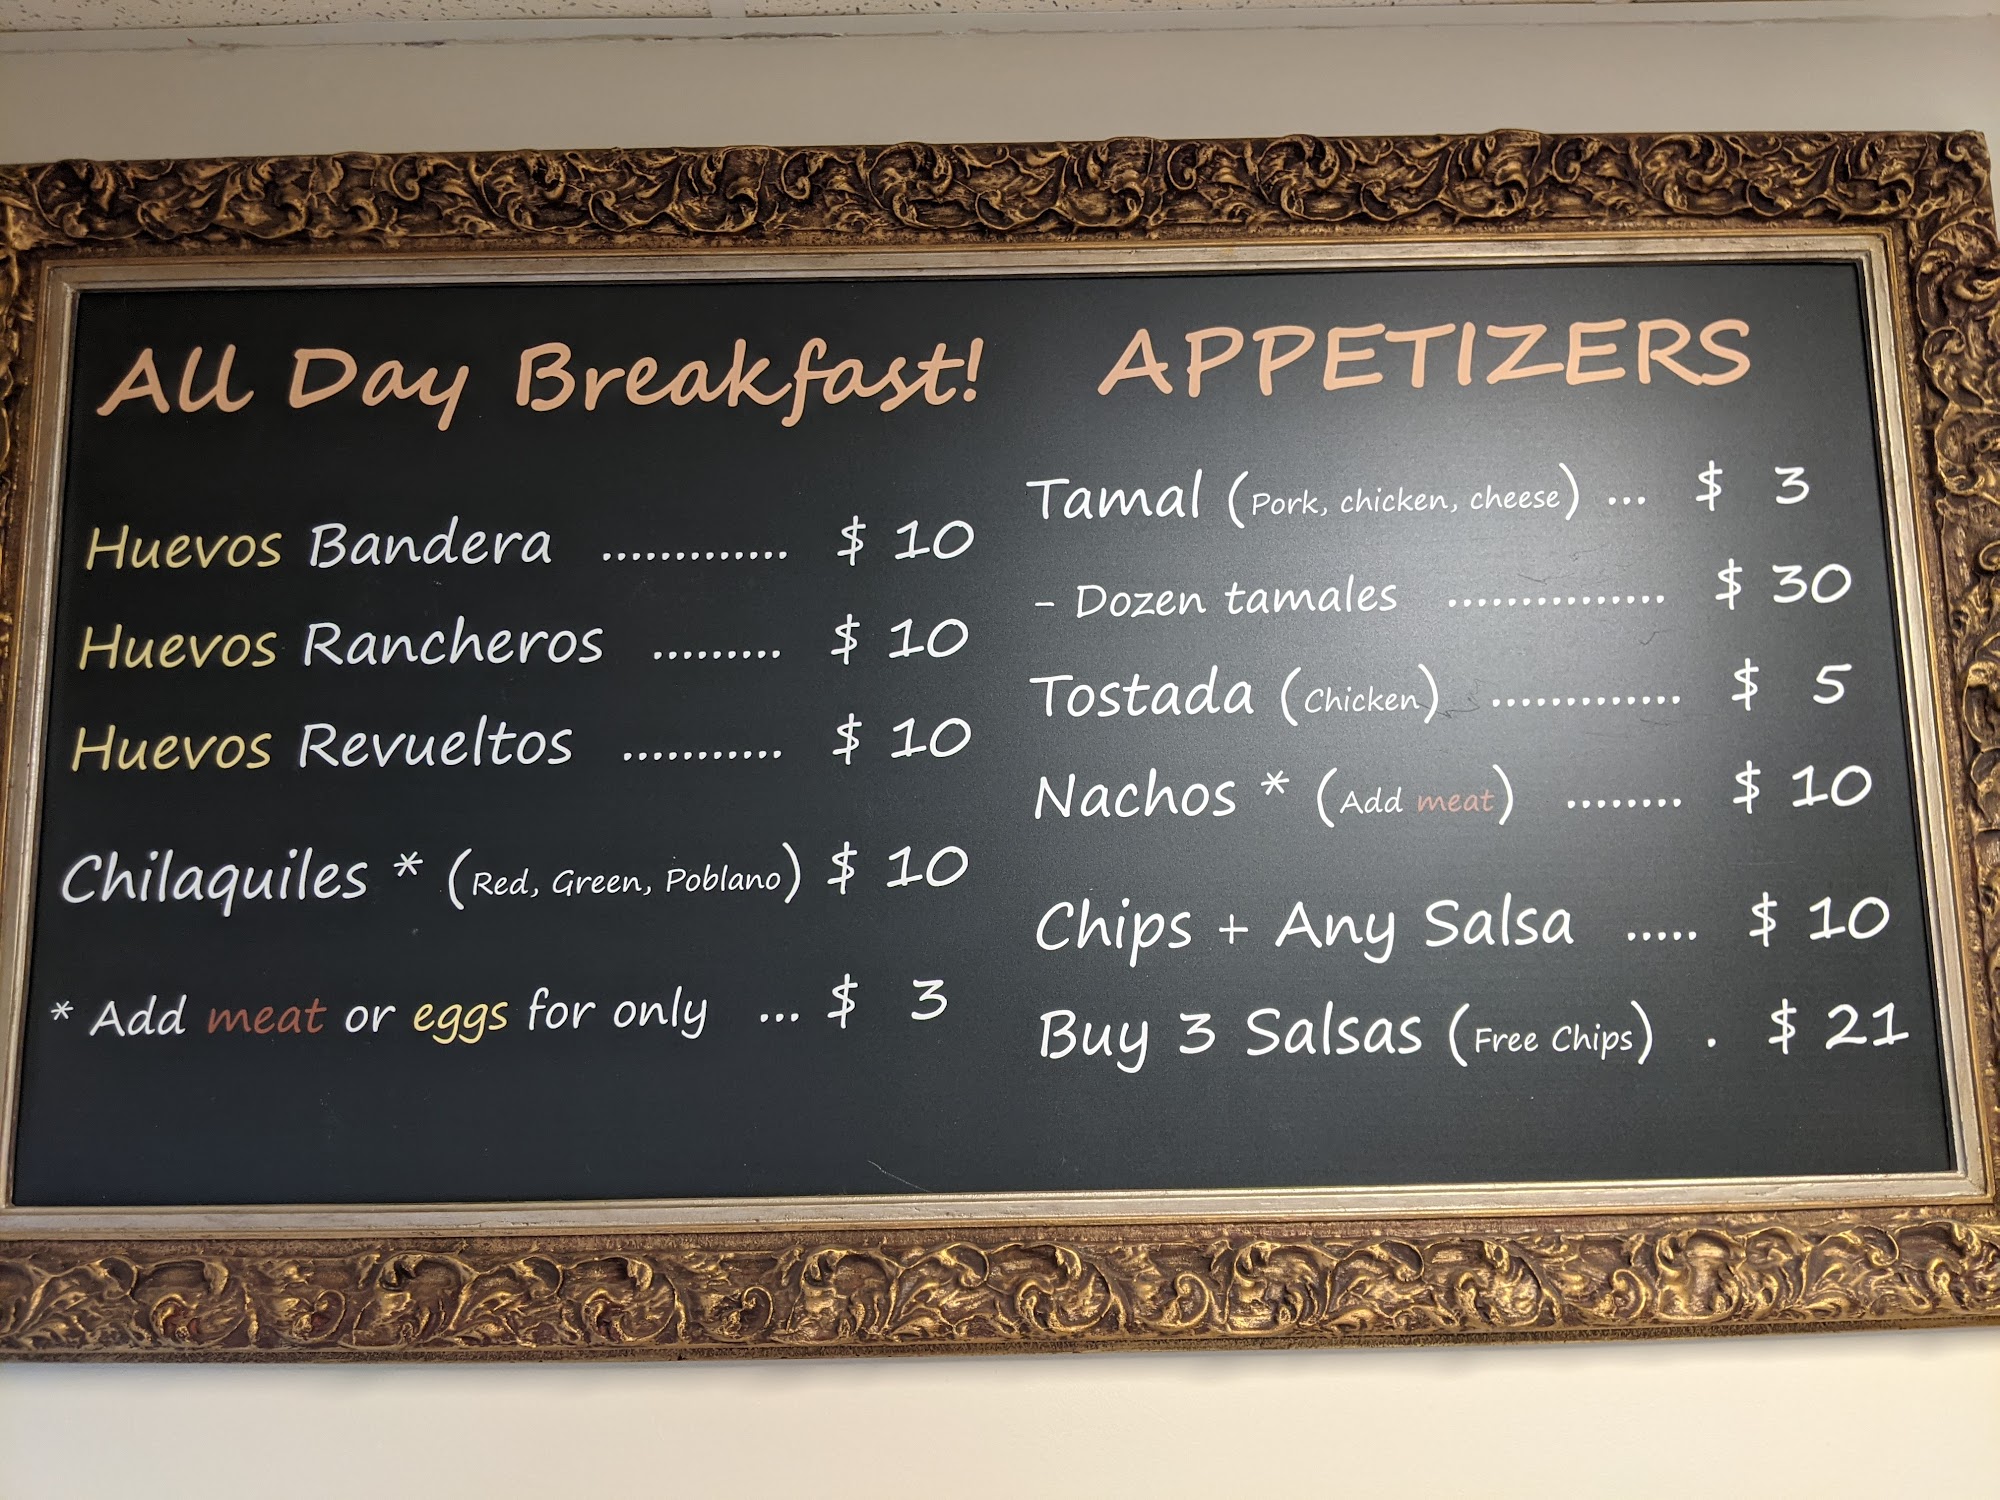 All Day Breakfast!
Huevos Bandera ............. $ 10
Huevos Rancheros ......... $ 10
Huevos Revueltos ........... $ 10
Chilaquiles * (Red, Green, Poblano) $ 10
* Add meat or eggs for only ... $ 3
APPETIZERS
Tamal (Pork, chicken, cheese) ... $ 3
- Dozen tamales ............... $ 30
Tostada (Chicken) ............. $ 5
Nachos * (Add meat) ........ $ 10
Chips + Any Salsa ..... $ 10
Buy 3 Salsas (Free Chips) . $ 21